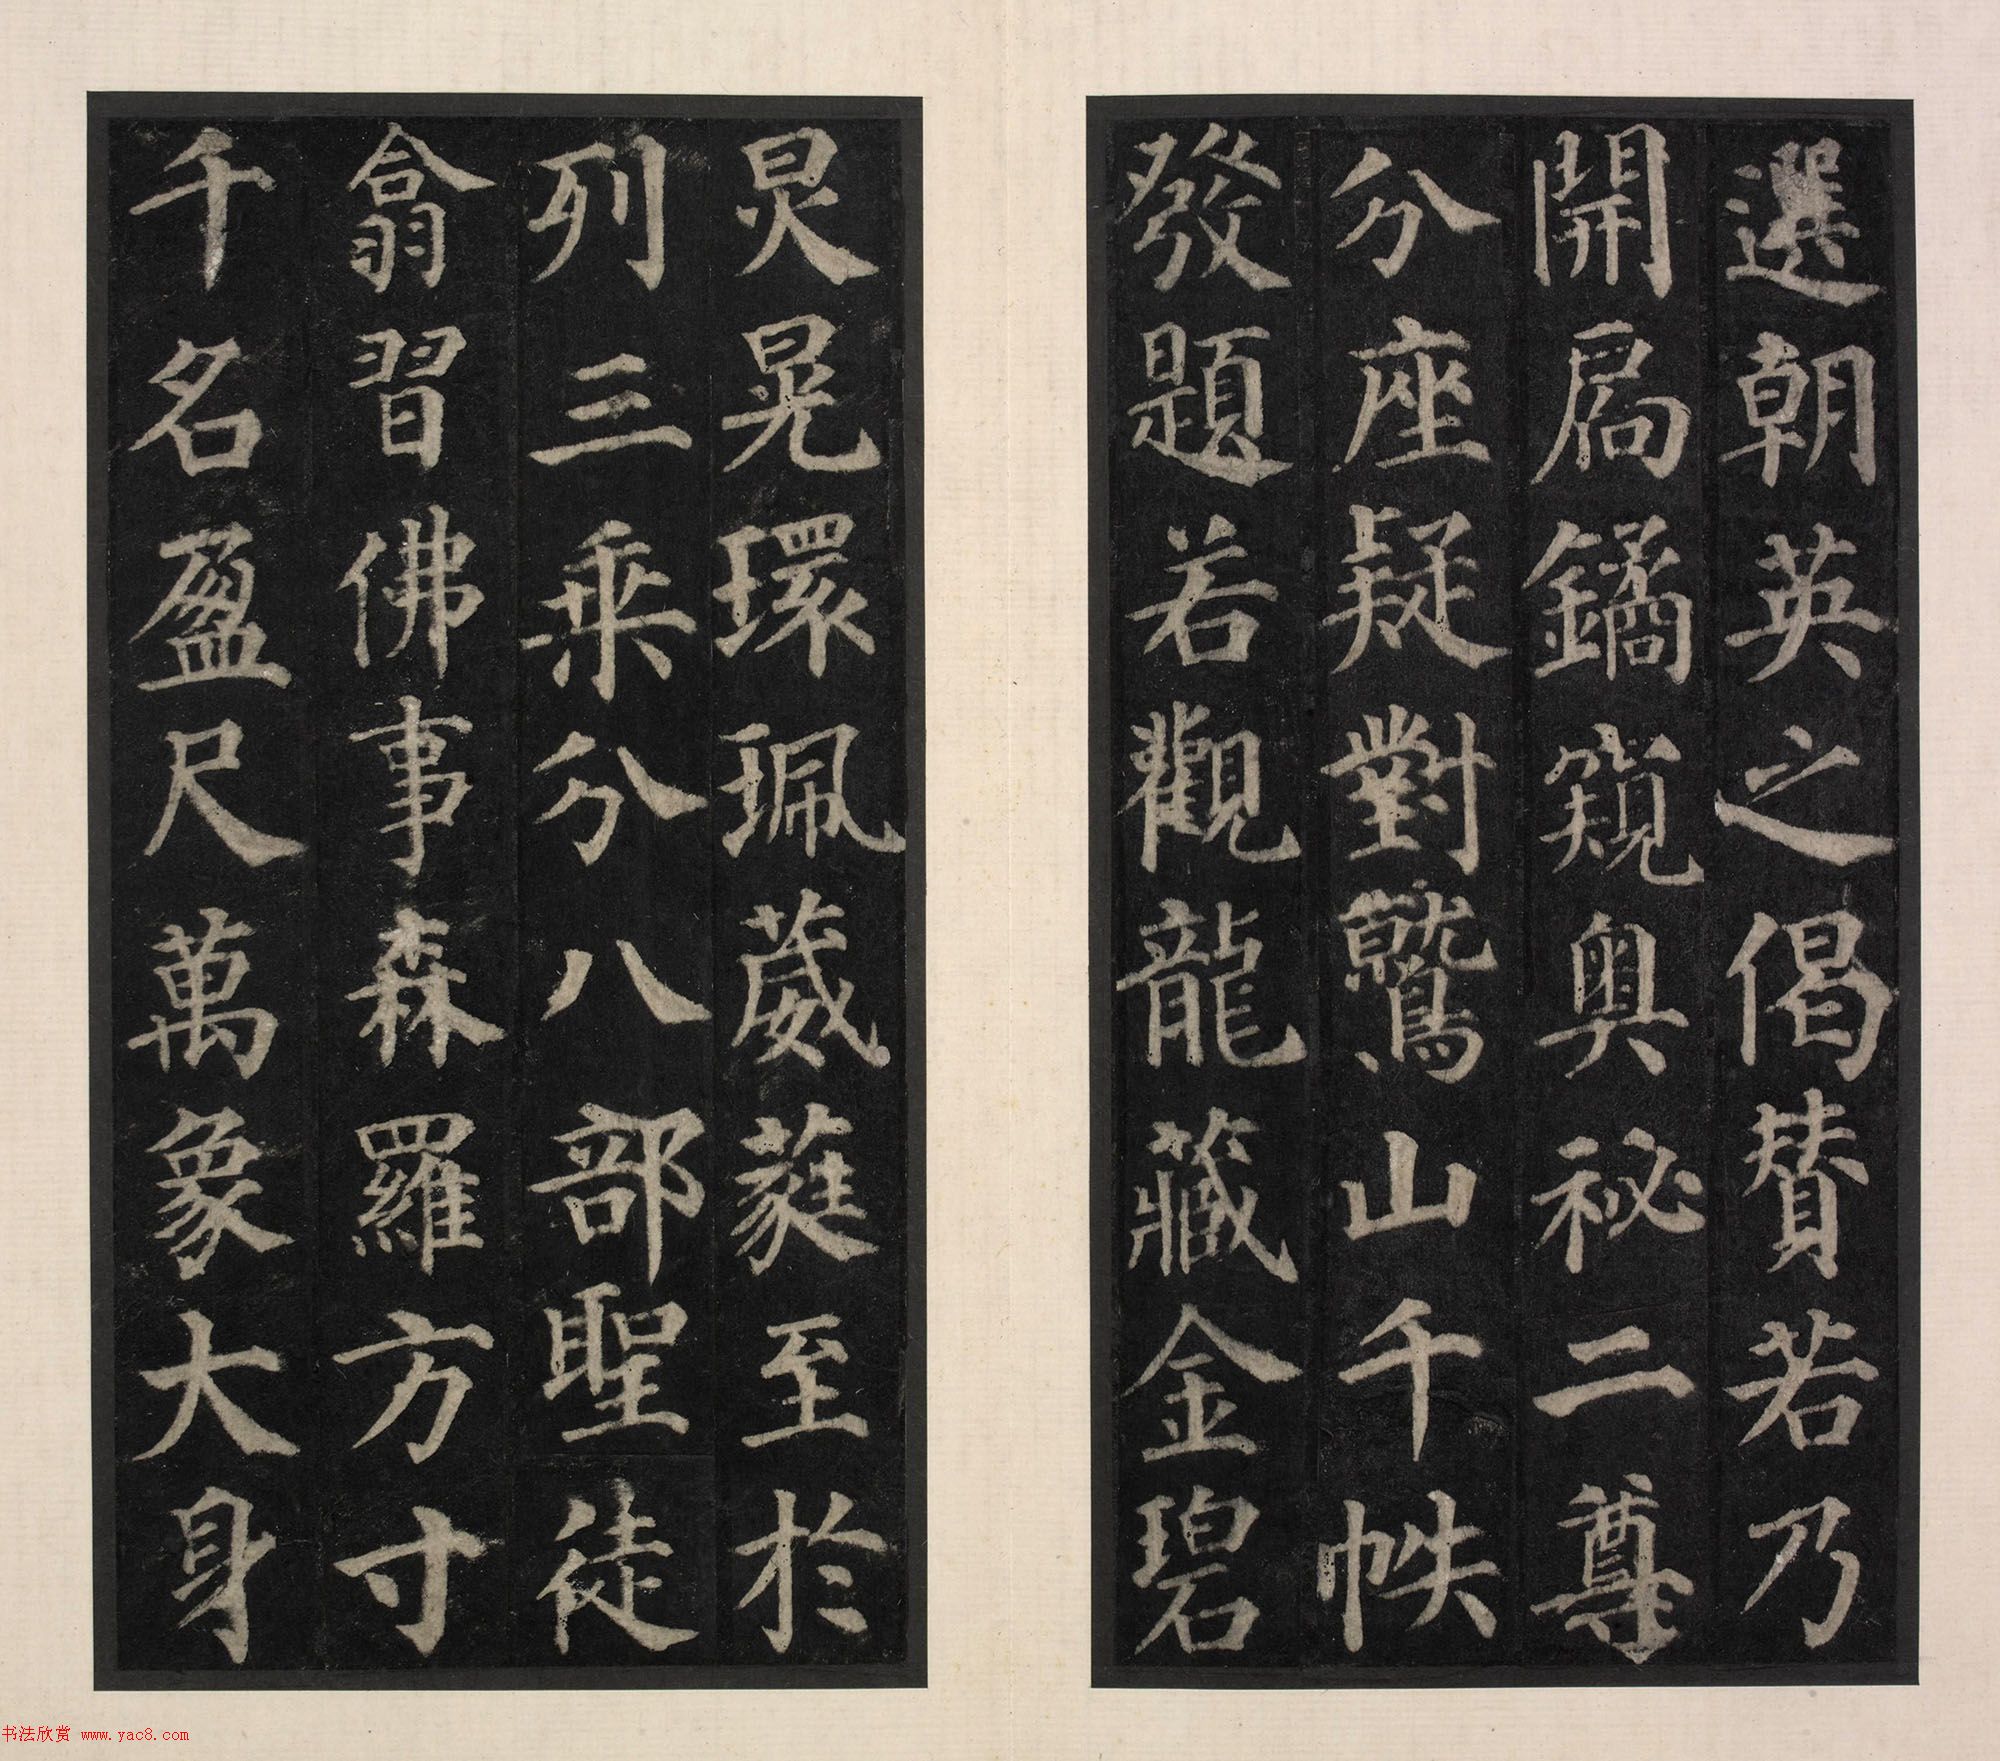 選朝英之偈賛若乃
開扃鐍窺奧祕二尊
分座疑對鷲山千帙
發題若觀龍藏金碧
炅晃環珮葳蕤至於
列三乘分八部聖徒
翕習佛事森羅方寸
千名盈尺萬象大身
书法欣赏 www.yac8.com